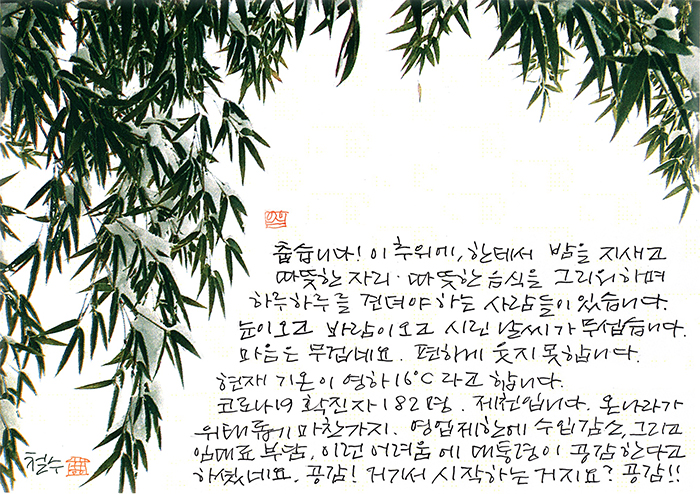 춥습니다! 이 추위에, 한데서 밤을 지새고
따뜻한 자리·따뜻한 음식을 그리워하며
하루하루를 견뎌야 하는 사람들이 있습니다.
눈이오고 바람이오고 시린 날씨가 무섭습니다.
마음은 무겁네요. 편하게 웃지 못합니다.
현재 기온이 영하 16°C 라고 합니다.
코로나19 확진자 182명. 제천입니다. 온나라가
위태롭기 마찬가지. 영업제한에 수입감소, 그리고
임대료 부담, 이런 어려움에 대통령이 공감한다고
하셨네요. 공감! 거기서 시작하는 거지요? 공감!!
철수